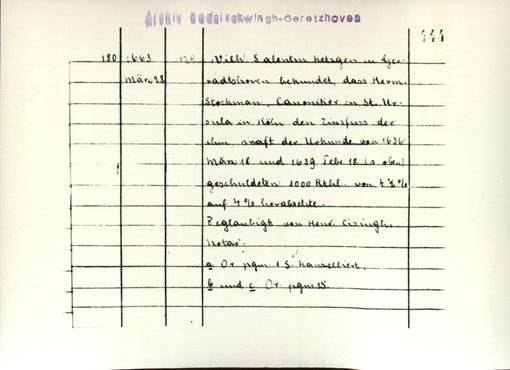 Archiv Bodelschwingh-Geretzhoven
444
180 1663 120 Wilh. Salentin Ketzgen in Ge-
März 28 radtshoven bekundet, dass Herm.
Stockman, Canoniker in St. Ur-
sula in Köln den Zinsfuss der
ihm kraft der Urkunde von 1636
März 18 und 1639 Febr 18 (s. oben)
geschuldeten 3000 Rthl. von 4 ½ %
auf 4 % herabsetzte.
Beglaubigt von Henr. Eisingh,
Notar.
a Or. pgm. 1 S. kanzelliert,
b und c Or. pgm 1S.